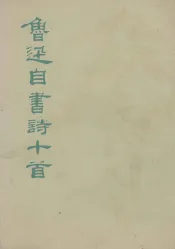 魯迅自書詩十首